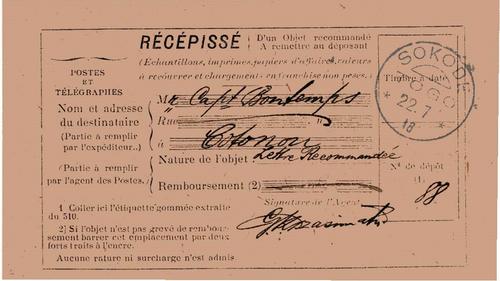 RÉCÉPISSÉ
D'un Objet recommandé
A remettre au déposant
(Echantillons, imprimés, papiers d'affaires, valeurs
à recouvrer et chargements en franchise non pesés.)
POSTES
ET
TÉLÉGRAPHES
Nom et adresse
du destinataire
(Partie à remplir
par l'expéditeur..)
(Partie à remplir
par l'agent des Postes.)
Mr Capt Bontemps
Rue n°
à Cotonou
Nature de l'objet Lettre Recommandée
Remboursement (2)
Signature de l'Agent
Timbre à date
SOKODE
TOGO
22.7
18
N° de dépôt
(1)
88
1) Coller ici l'étiquette gommée extraite
du 510.
2) Si l'objet n'est pas grevé de rembour-
sement barrer cet emplacement par deux
forts traits à l'encre.
Aucune rature ni surcharge n'est admis